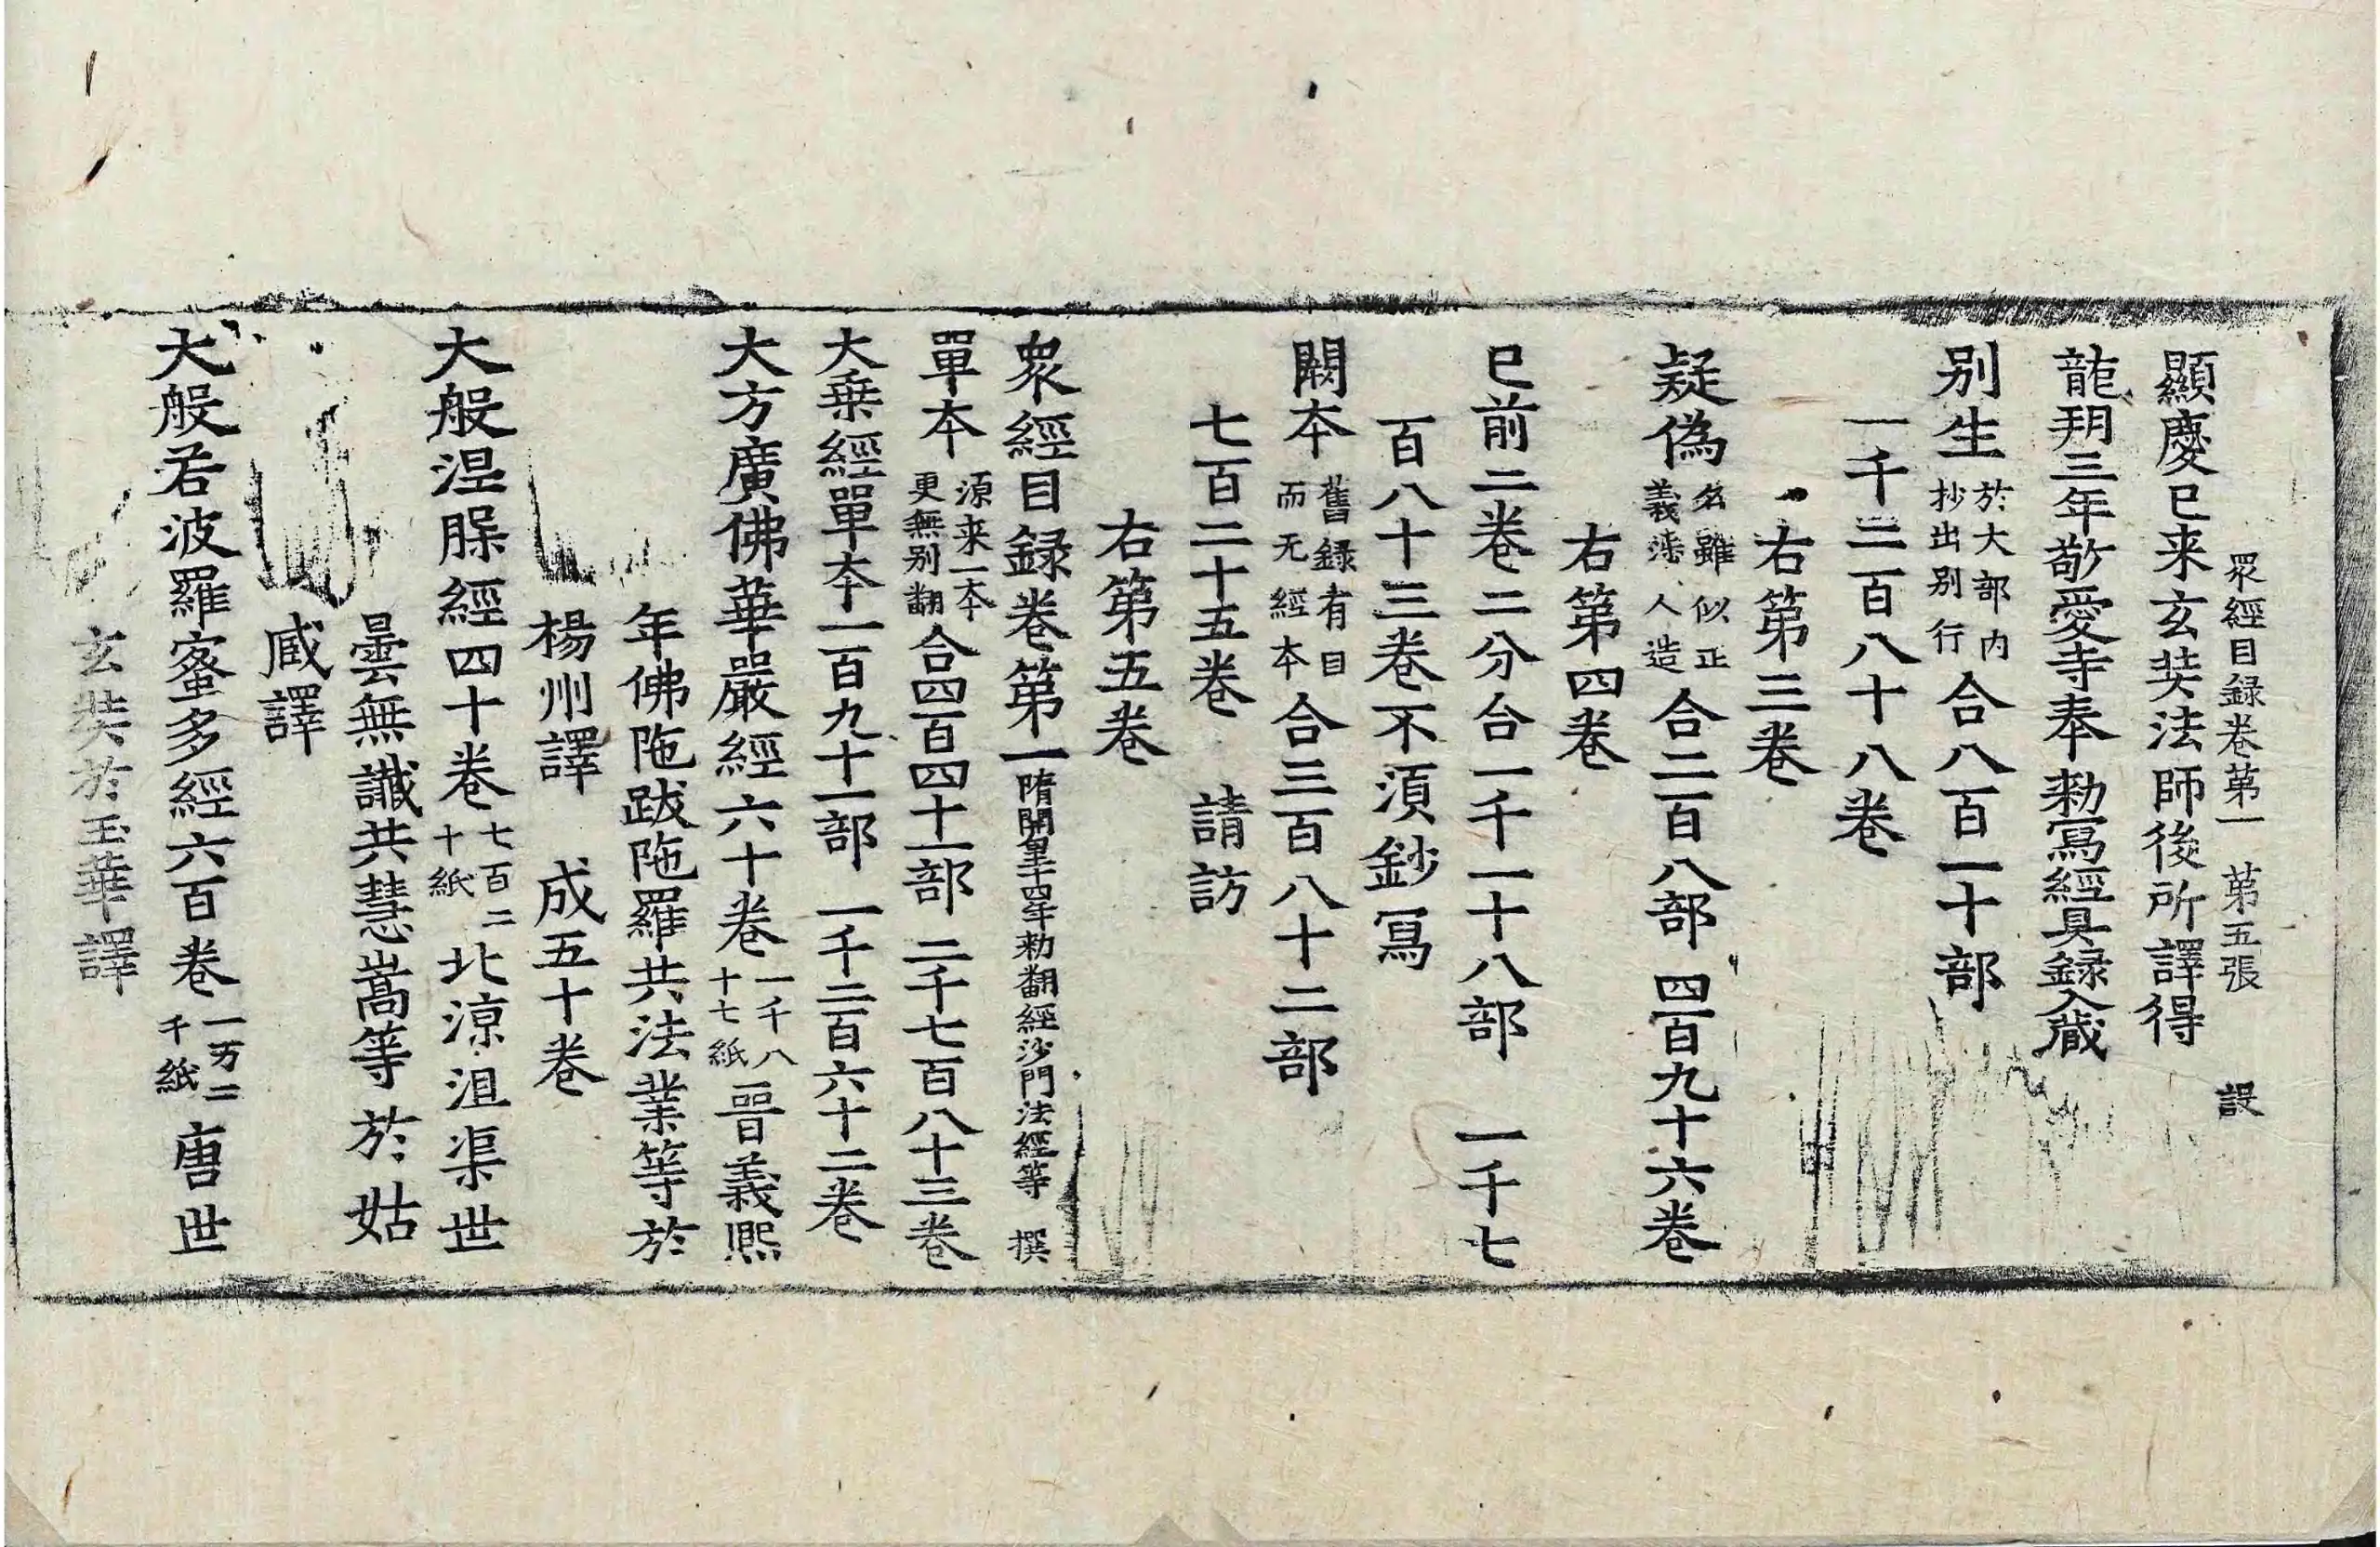 衆經目録卷第一 第五張 設
顯慶已来玄奘法師後所譯得
龍朔三年敬愛寺奉勑寫經具録入藏
别生於大部内抄出别行合八百一十部
一千二百八十八卷
右第三卷
疑偽名雖似正義渉人造合二百八部 四百九十六卷
右第四卷
已前二卷二分合一千一十八部 一千七
百八十三卷不湏鈔冩
闕本舊録有目而无經本合三百八十二部
七百二十五卷 請訪
右第五卷
衆經目録卷第一隋開皇十四年勑翻經沙門法經等 撰
單本源来一本更無别翻合四百四十一部 二千七百八十三卷
大乗經單本一百九十一部 一千二百六十二卷
大方廣佛華嚴經六十卷一千八十七紙晉義熈
年佛陁跋陁羅共法業等於
楊州譯 成五十卷
大般涅腂經四十卷七百二十紙北涼沮渠世
曇無讖共慧嵩等於姑
臧譯
大般若波羅蜜多經六百卷一万二千紙唐世
玄奘於玉華譯